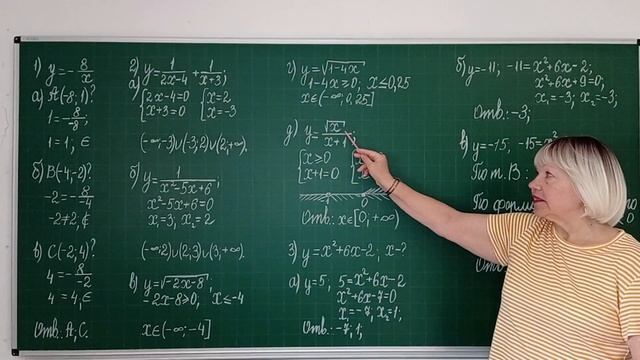 1) y = - 8/x
а) A(-8; 1)?
1 = - 8/-8,
1 = 1, ∈
б) B(-4; -2)?
-2 = - 8/4
-2 ≠ 2, ∉
в) C(-2; 4)?
4 = - 8/-2
4 = 4, ∈
Отв. A, C.
2) y = 1/2x-4 + 1/x+3;
а) {2x-4=0 {x=2
x+3=0 x=-3
(-∞;-3)∪(-3;2)∪(2;+∞).
б) y = 1/x²-5x+6;
x²-5x+6=0
x₁=3, x₂=2
(-∞;2)∪(2;3)∪(3;+∞).
в) y=√-2x-8,
-2x-8≥0, x≤-4
x∈(-∞;-4]
г) y=√1-4x
1-4x≥0; x≤0,25
x∈(-∞;0,25]
д) y= √x/x+1;
[x≥0
x+1=0
-1 0
Отв: x∈[0;+∞)
3) y=x²+6x-2, x-?
а) y=5, 5=x²+6x-2
x²+6x-7=0
x₁=-7, x₂=1;
Отв: -7; 1;
б) y=-11, -11=x²+6x-2;
x²+6x+9=0;
x₁=-3; x₂=-3;
Отв: -3;
в) y=-15, -15=x²
По т. В
По форм